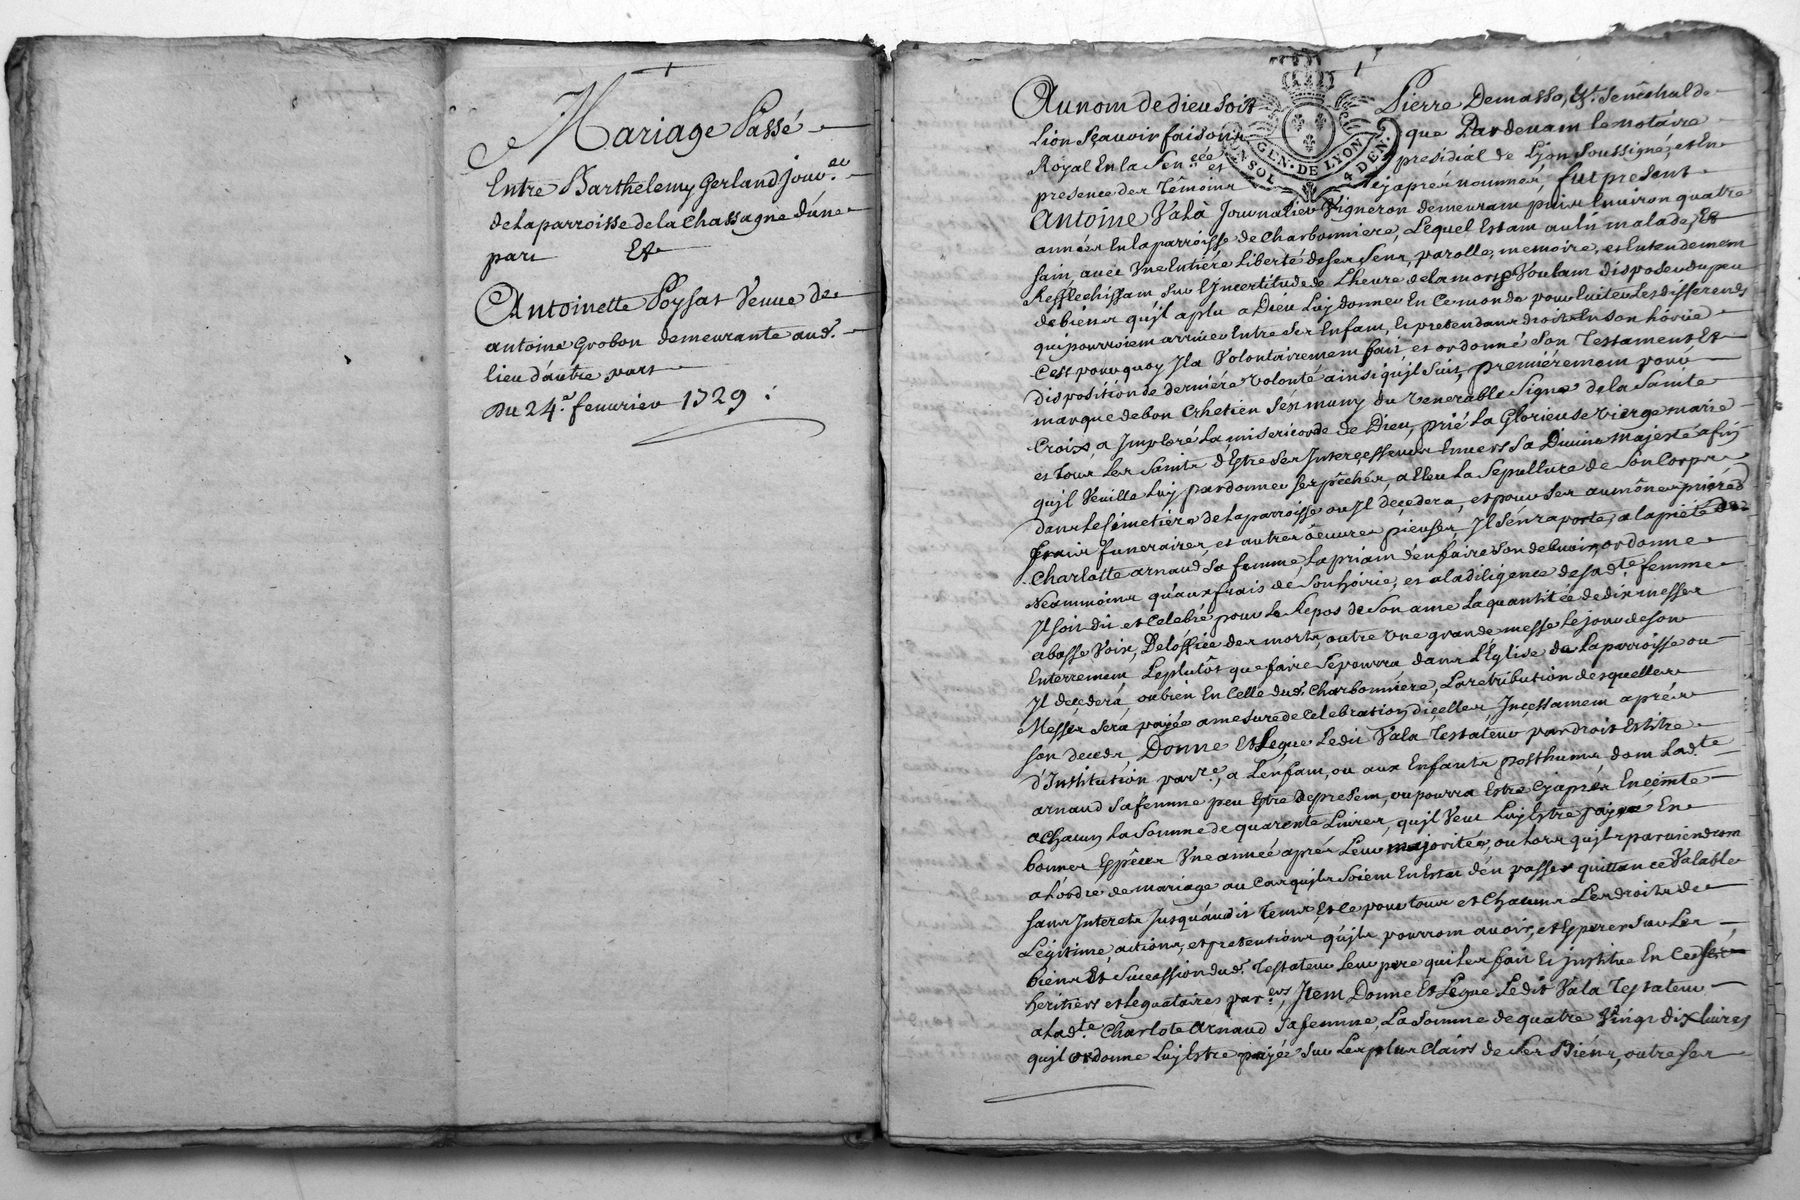 Mariage Passé
Entre Barthelemy Gerland Jour.er
de la parroisse de la Chassagne d'une
part Et
Antoinette Poysat Veuve de
antoine Grobon demeurante aud.
lieu d'autre part
Du 24.e feuurier 1729 :
1
GEN. DE LYON
UN SOL 4 DEN.
Au nom de dieu soit Pierre Demasso, Es.t Senêchal de
Lion Sçavoir faisons que Pardevant le notaire
Royal En la Sen.cée et presidial de Lyon Soussigné, et En
presence des Têmoins cy aprés nommés, fut present
Antoine Valà Journalier Vigneron demeurant puis Enuiron quatre
années En la parroisse de Charbonniere, Lequel Estant au lit malade, Et
sain, auec Vne Entiére Liberté de ses Sens, parolle, memoire, et Entendement
Reffléchissant Sur L'Jncertitude de L'heure de la mort, Voulant disposer du peu
de biens qu'jl a plu a Dieu Luy donner En ce monde pour Euiter Les differends
qui pourroient arriuer Entre Ses Enfans, et pretendans droits En son hoirie
C'est pourquoy Jl a Volontairement fait et ordonné Son Testament Et
disposition de derniére Volonté ainsi qu'jl Suit, premiérement pour
marque de bon Chrétien S'est muny du Venerable Signe de la Sainte
Croix, a Jmploré La misericorde de Dieu, prié La Glorieuse Vierge marie
et tous Les Saints d'Estre Ses Jntercesseurs Enuers Sa Diuine Majesté afin
qu'jl Veuille Luy pardonner Ses pêchés, a Elu La Sepulture de Son Corps
dans le Cimetiére de La parroisse ou Jl decedera, et pour Ses aumônes priéres
frais funeraires et autres oeuures pieuses, Jl S'en raporte, a la pieté de
Charlotte arnaud Sa femme, La priant d'en faire Son debuoir, ordonne
Neammoins qu'aux frais de Son hoirie, et a la diligence de Sad.te femme
Jl Soit dit et Celebré pour Le Repos de Son ame La quantité de dix messes
a basse Voix, De L'office des morts, outre Vne grande messe Le jour de Son
Enterrement Leplutôt que faire Se pourra dans L'Eglise de La parroisse ou
Jl decedera, ou bien En Celle dud. Charbonniére, La retribution desquelles
Messes Sera payée a mesure de Celebration d'jcelles Jncessament aprés
Son decés, Donne Et Legue Ledit Vala Testateur par droit Et titre
d'Jnstitution par.re, a L'enfant, ou aux Enfants posthumes dont Lad.te
arnaud Sa femme peut Estre de present, ou pourra Estre Cy aprés Enceinte
a Chacun La Somme de quarente Liures, qu'jl Veut Luy Estre payée En
bonnes Espéces Vne année aprés Leur majoritée, ou Lors qu'jls paruiendront
a L'ordre de mariage au Cas qu'jls Soient En Etat d'en passer quittance Valable
Sans Jnterets Jusqu'audit Tems Et Ce pour tous et Chacuns Les droits de
Légitime, actions, et pretentions qu'jls pourront auoir, et Esperer Sur Les
biens Et Succession dud. Testateur Leur pere qui les fait Et jnstitue En Ce Ses
heritiers et Legataires par.ers, Jtem Donne Et Legue Ledit Vala Testateur
a Lad.te Charlote Arnaud Sa femme, La Somme de quatre Vingt dix liures
qu'jl ordonne Luy Estre payée Sur Les plus Clairs de Ses Biens, outre Ses